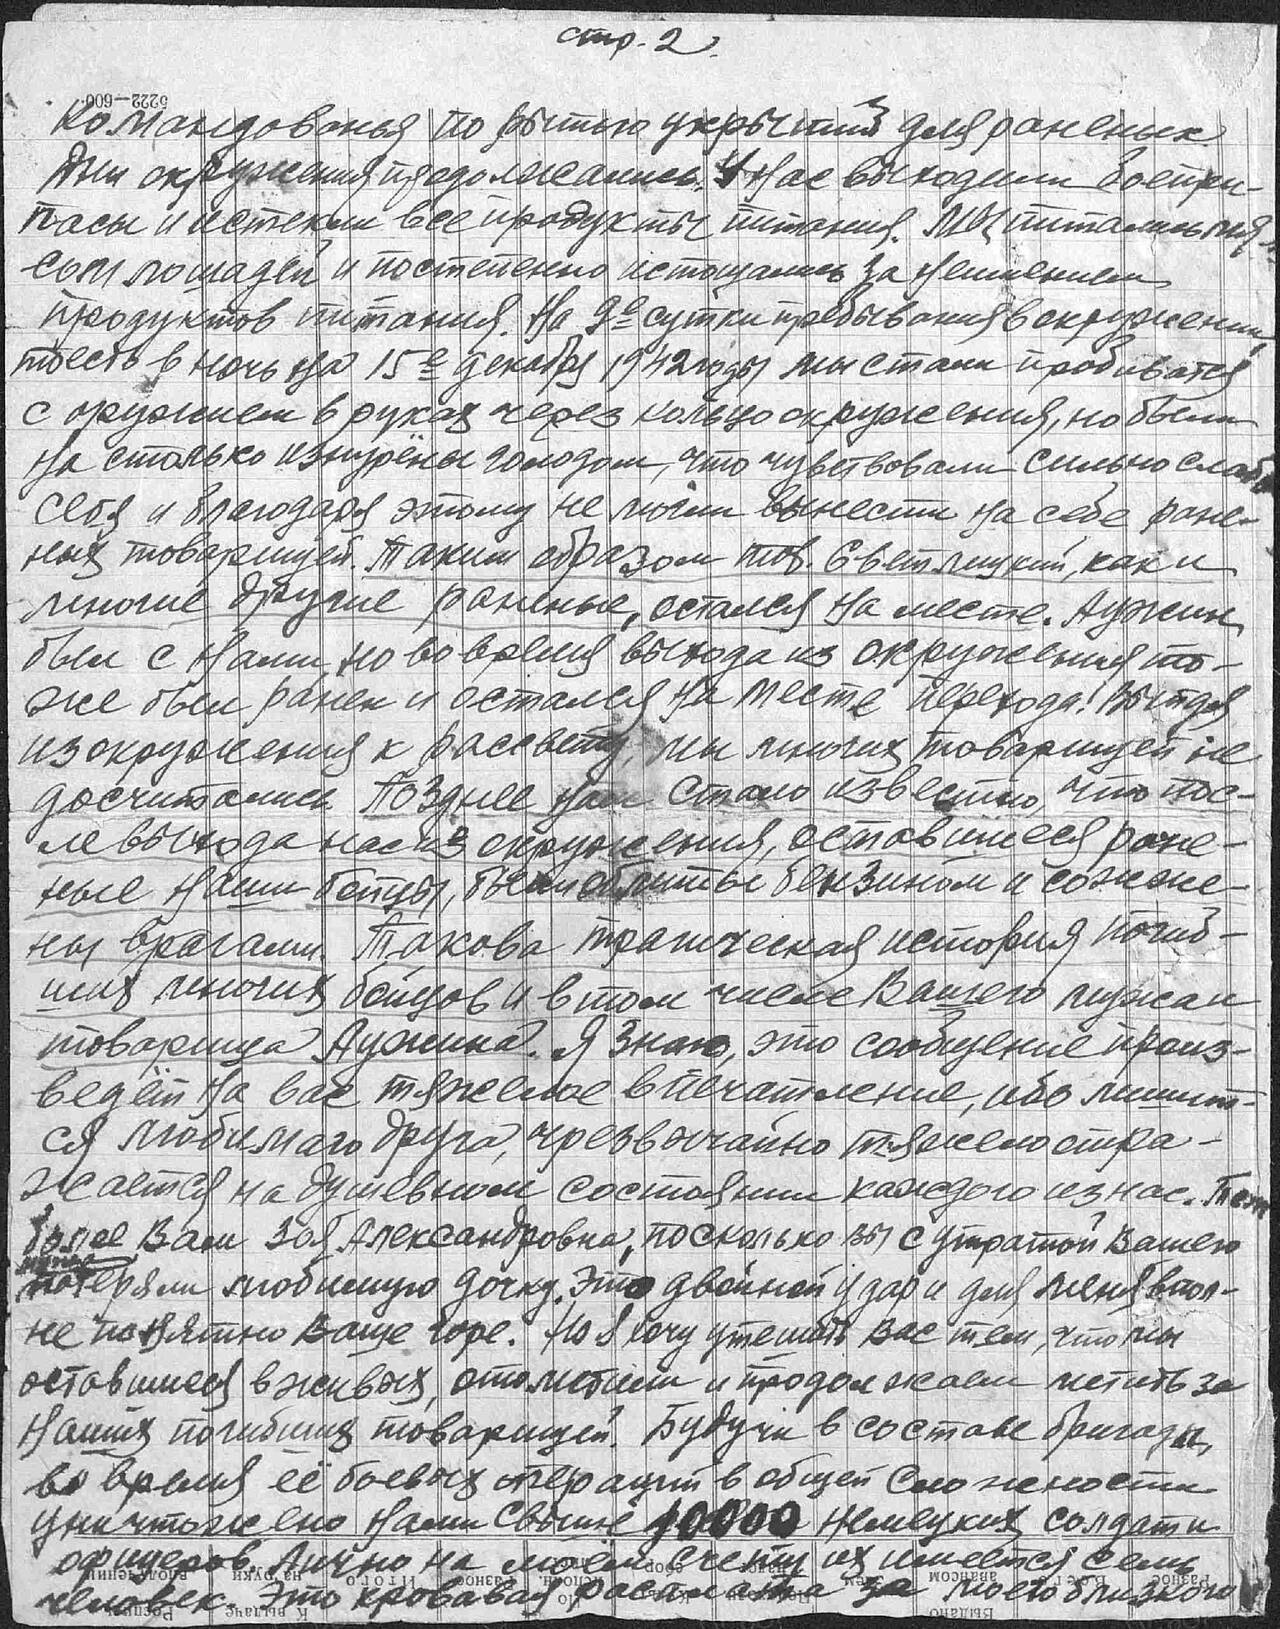 стр. 2.
5222—600.
Командованья по рытью укрытий для раненых.
Дни окружения продолжались. У нас выходили боепри-
пасы и истекли все продукты питания. Мы питались мя-
сом лошадей и постепенно истощались за неимением
продуктов питания. На 9е сутки пребывания в окружении,
тоесть в ночь на 15е декабря 1942 года мы стали пробиватся
с оружием в руках через кольцо окружения, но были
на столько изнурёны голодом, что чувствовали сильно слабо
себя и благодаря этому не могли вынести на себе ране-
ных товарищей. Таким образом тов. Светлицкий, как и
многие другие раненые, остался на месте. Аужин
был с нами, но во время выхода из окружения то-
же был ранен и остался на месте перехода. Выйдя
из окружения к рассвету, мы многих товарищей не
досчитались. Позднее нам стало известно, что пос-
ле выхода нас из окружения, оставшиеся ране-
ные наши бойцы, были облиты бензином и сожже-
ны врагами. Такова трагическая история погиб-
ших многих бойцов и в том числе Вашего мужа и
товарища Аужина. Я знаю, это сообщение произ-
ведёт на вас тяжелое впечатление, ибо лишит-
ся любимаго друга, чрезвычайно тяжело отра-
жается на душевном состоянии каждого из нас. Тем
более Вам Зоя Александровна, поскольку вы с утратой Вашего
мужа
потеряли любимую дочку. Это двойной удар и для меня впол-
не понятно Ваше горе. Но я хочу утешить Вас тем, что мы
оставшиеся в живых, отомстили и продолжаем мстить за
наших погибших товарищей. Будучи в составе бригады,
во время её боевых операций в общей сложности
уничтожено нами свыше 10000 немецких солдат и
офицеров. Лично на моём счету их имеется семь
человек. Это кровавая расплата за моего близкого